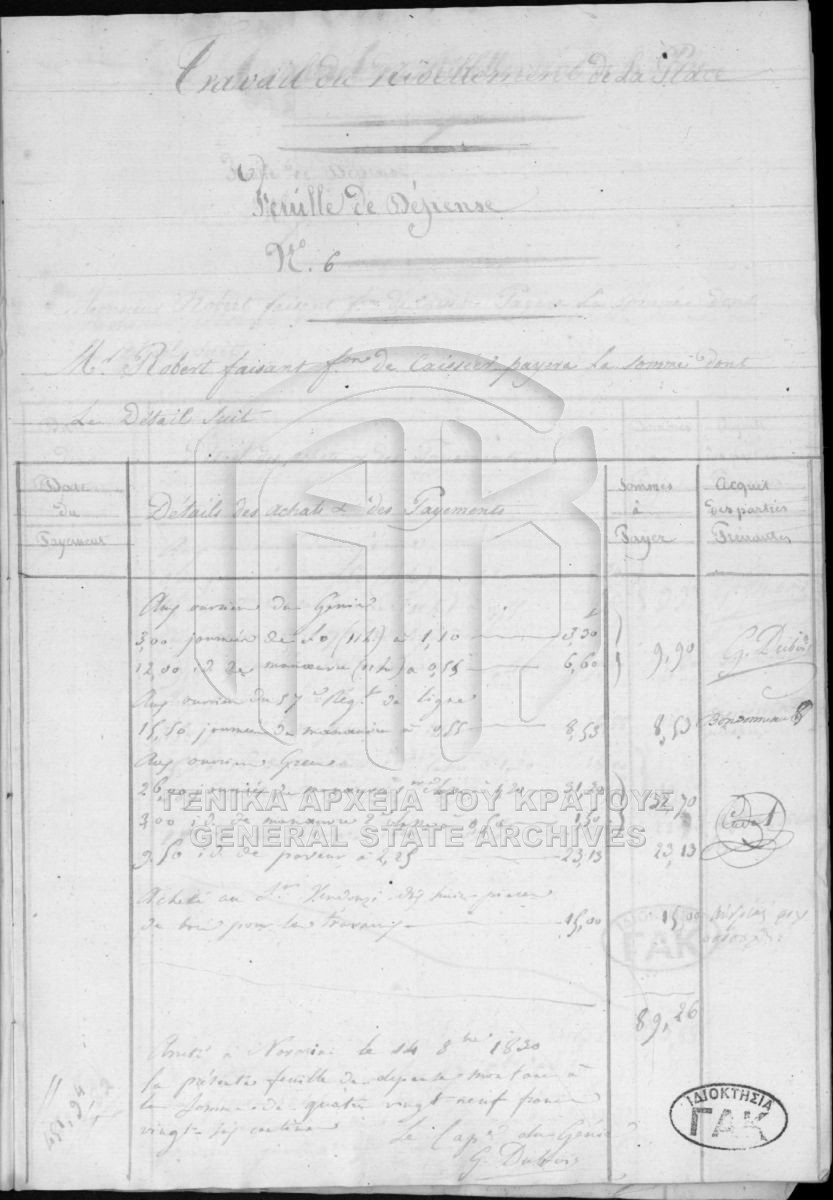 Travail du nivellement de la Place
Feuille de Dépense
N.º 6
M.r Robert faisant f.on de Caissier payera la somme dont
Le Détail suit
Date
du
Payement
Détails des achats & des Payements
Sommes
à
Payer
Acquit
des parties
Prenantes
Aux ouvriers du Génie
3,00 journées de (11h) à 1,10 3,30
12,00 id de manœuvre (11h) à 0,55 6,60
9,90
G. Dubois
Aux ouvriers du 57e Régt de Ligne
15,50 journées de manœuvre à 0,55 8,53
8,53
Aux ouvriers Grecs
26,00 journées de manœuvre à 1,20 31,20
3,00 id. de manœuvre 2e classe à 0,50 1,50
32,70
9,50 id. de paveur à 2,25 23,13
23,13
Acheté au Sr. dix huit pièces
de bois pour les travaux 15,00
15,00
89,26
Arrêté à Navarin le 14 8bre 1830
la présente feuille de dépense montant à
la somme de quatre vingt neuf francs
vingt six centimes
Le Cap.e du Génie
G. Dubois
ΓΕΝΙΚΑ ΑΡΧΕΙΑ ΤΟΥ ΚΡΑΤΟΥΣ
GENERAL STATE ARCHIVES
ΙΔΙΟΚΤΗΣΙΑ
ΓΑΚ
ΙΔΙΟΚΤΗΣΙΑ
ΓΑΚ